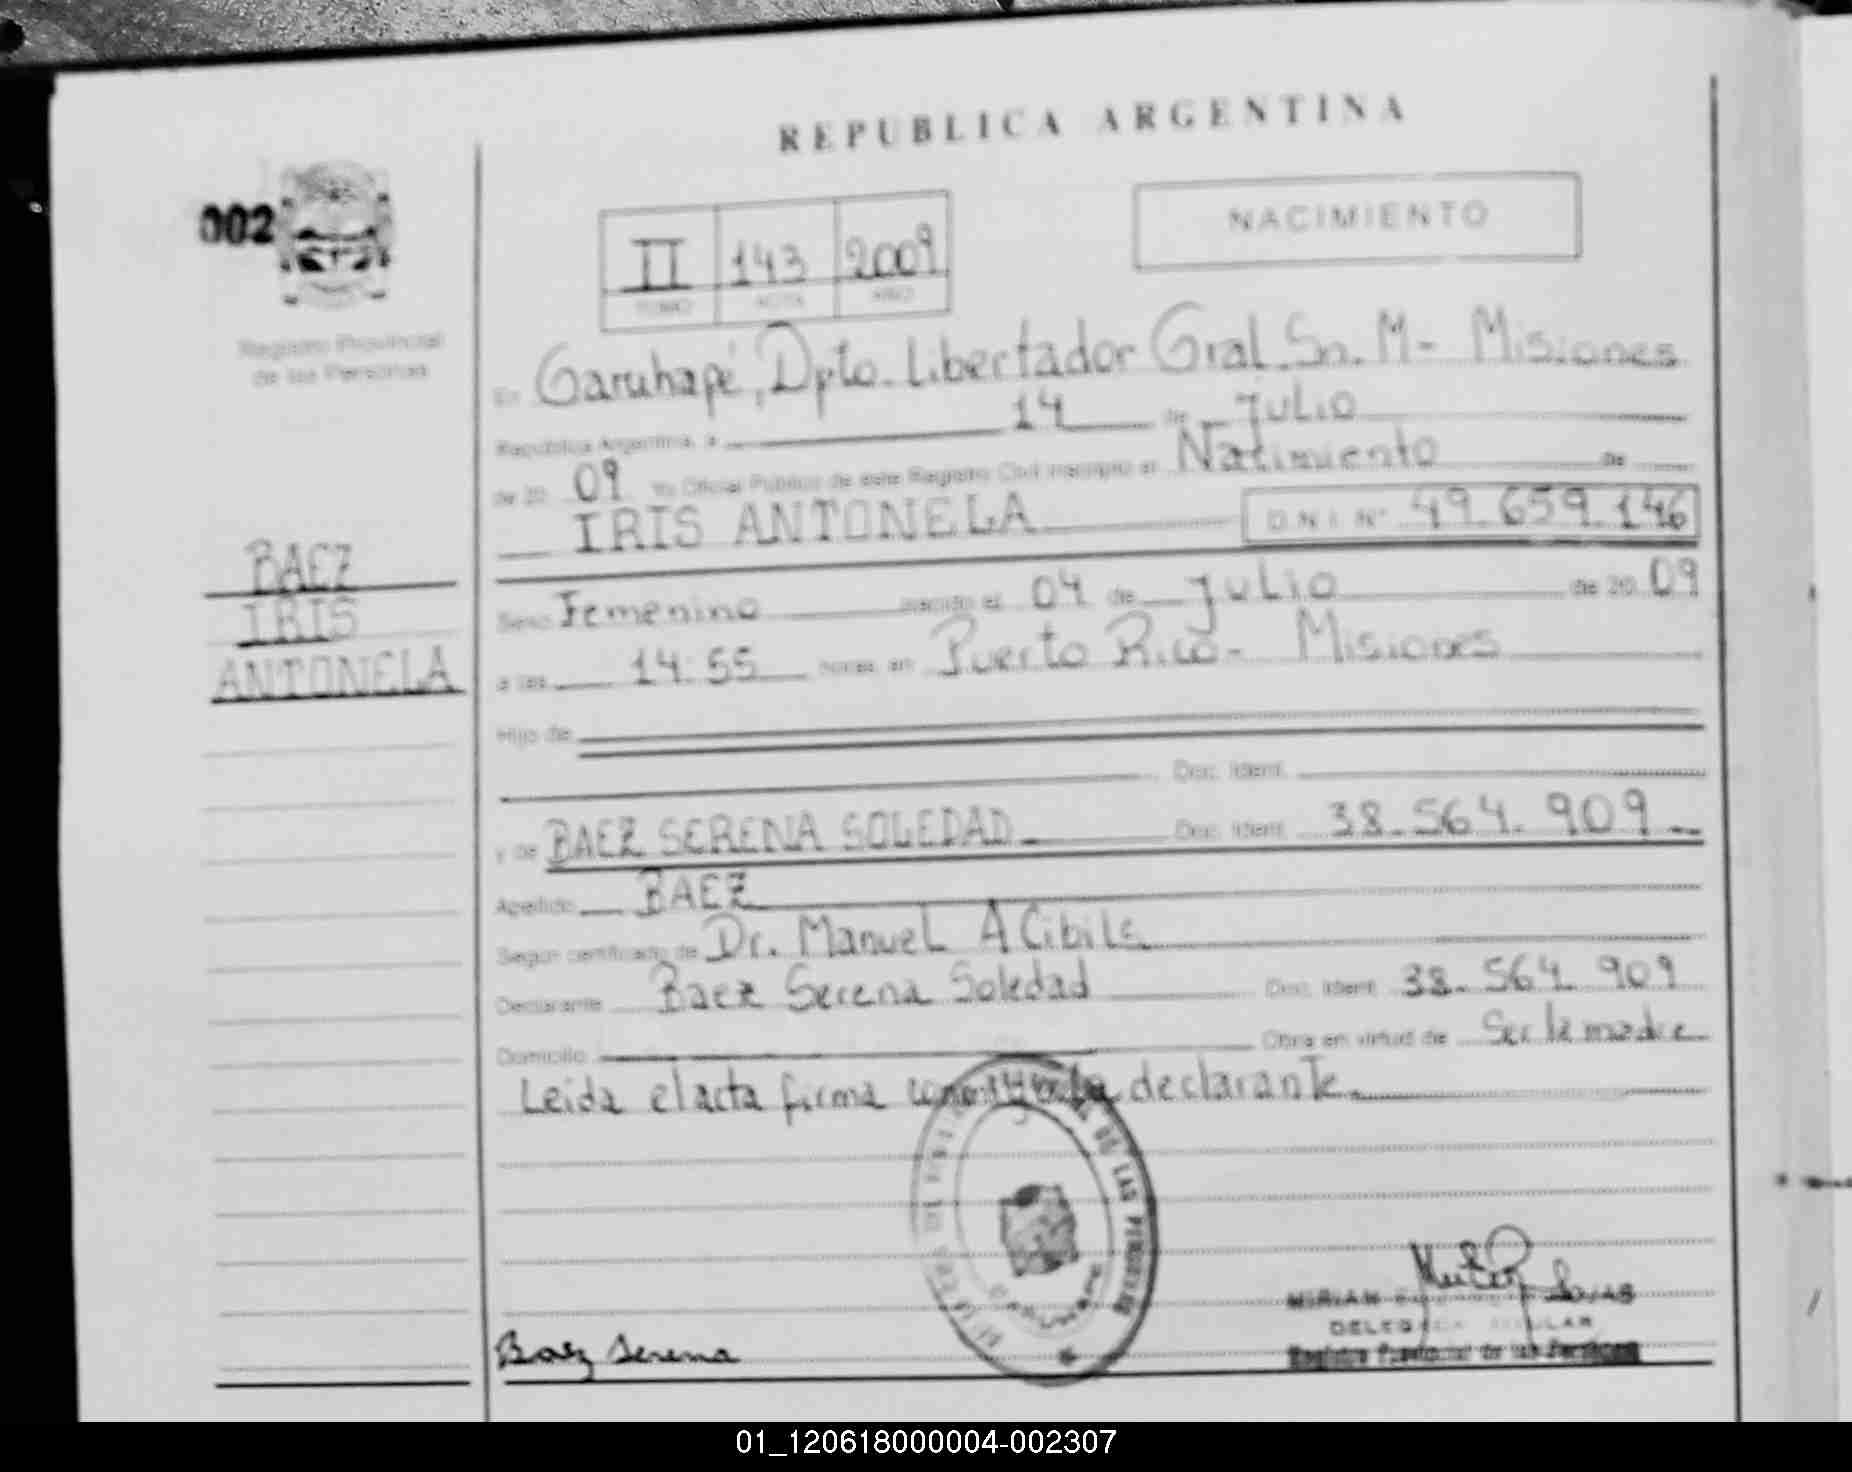 REPUBLICA ARGENTINA
002
NACIMIENTO
II 143 2009
TOMO ACTA AÑO
Registro Provincial
de las Personas
En Garuhapé, Dpto. Libertador Gral. Sn. M- Misiones
República Argentina, a 14 de Julio
de 20 09 Yo Oficial Público de este Registro Civil inscripto el Nacimiento de
IRIS ANTONELA D N I Nº 49.659.146
BAEZ
IRIS
ANTONELA
Sexo Femenino nacido el 04 de Julio de 20 09
a las 14:55 horas en Puerto Rico- Misiones
Hijo de
Doc. Ident.
y de BAEZ SERENA SOLEDAD Doc. Ident. 38.564.909
Apellido BAEZ
Según certificado de Dr. Manuel A Cibils
Declarante Baez Serena Soledad Doc. Ident. 38.564.909
Domicilio Obra en virtud de Ser la madre
Leida el acta firma conmigo la declarante.
DE LAS PERSONAS
GARUHAPE
Baez Serena
MIRIAN
Registro Provincial de las Personas
01_120618000004-002307